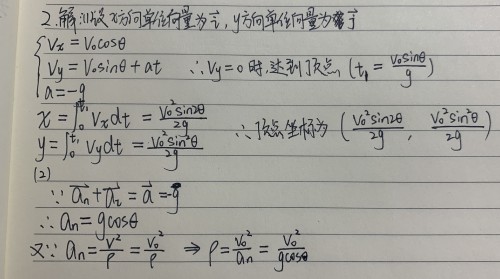 2.解:(1)设x方向单位向量为i,y方向单位向量为j
Vx = V₀cosθ
Vy = V₀sinθ + at ∴Vy=0时,达到顶点 (t₁ = V₀sinθ/g)
a = -g
x = ∫₀^t₁ Vxdt = V₀²sin2θ/2g
y = ∫₀^t₁ Vydt = V₀²sin²θ/2g ∴顶点坐标为 (V₀²sin2θ/2g, V₀²sin²θ/2g)
(2)
∵ an + aτ = a = g
∴ an = gcosθ
又∵ an = V²/ρ = V₀²/ρ ⇒ ρ = V₀²/an = V₀²/gcosθ